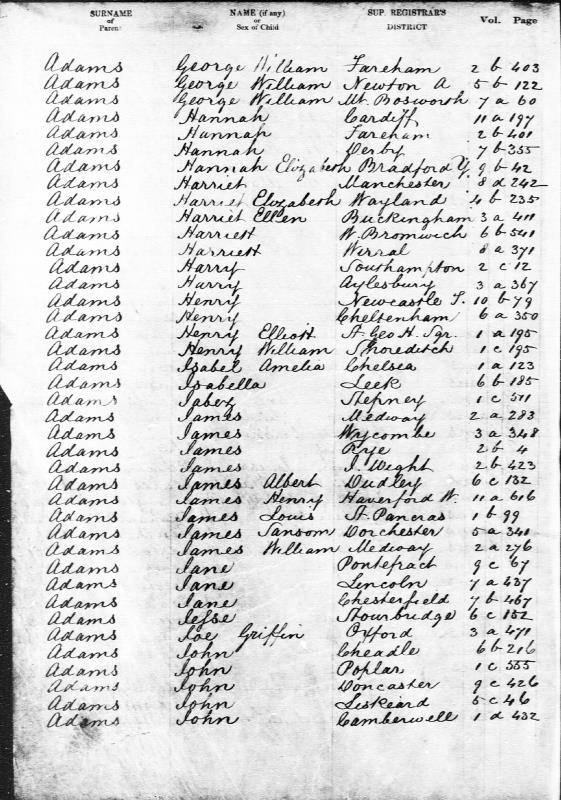 SURNAME of Parent NAME (if any) or Sex of Child SUP. REGISTRAR'S DISTRICT Vol. Page
Adams George William Fareham 2 b 403
Adams George William Newton A 5 b 122
Adams George William Mt. Bosworth 7 a 60
Adams Hannah Cardiff 11 a 197
Adams Hannah Fareham 2 b 401
Adams Hannah Derby 7 b 355
Adams Hannah Elizabeth Bradford Y. 9 b 42
Adams Harriet Manchester 8 d 242
Adams Harriet Elizabeth Wayland 4 b 235
Adams Harriet Ellen Buckingham 3 a 411
Adams Harriett W. Bromwich 6 b 541
Adams Harriett Wirral 8 a 371
Adams Harry Southampton 2 c 12
Adams Harry Aylesbury 3 a 367
Adams Henry Newcastle T. 10 b 79
Adams Henry Cheltenham 6 a 350
Adams Henry Elliott St. Geo H. Sqr. 1 a 195
Adams Henry William Shoreditch 1 c 195
Adams Isabel Amelia Chelsea 1 a 123
Adams Isabella Leek 6 b 185
Adams Jabez Stepney 1 c 511
Adams James Medway 2 a 283
Adams James Wycombe 3 a 348
Adams James Rye 2 b 4
Adams James I. Wight 2 b 423
Adams James Albert Dudley 6 c 132
Adams James Henry Haverford W. 11 a 616
Adams James Louis St. Pancras 1 b 99
Adams James Sansom Dorchester 5 a 341
Adams James William Medway 2 a 276
Adams Jane Pontefract 9 c 67
Adams Jane Lincoln 7 a 437
Adams Jane Chesterfield 7 b 467
Adams Jesse Stourbridge 6 c 152
Adams Joe Griffin Oxford 3 a 471
Adams John Cheadle 6 b 216
Adams John Poplar 1 c 555
Adams John Doncaster 9 c 426
Adams John Liskeard 5 c 46
Adams John Camberwell 1 d 432